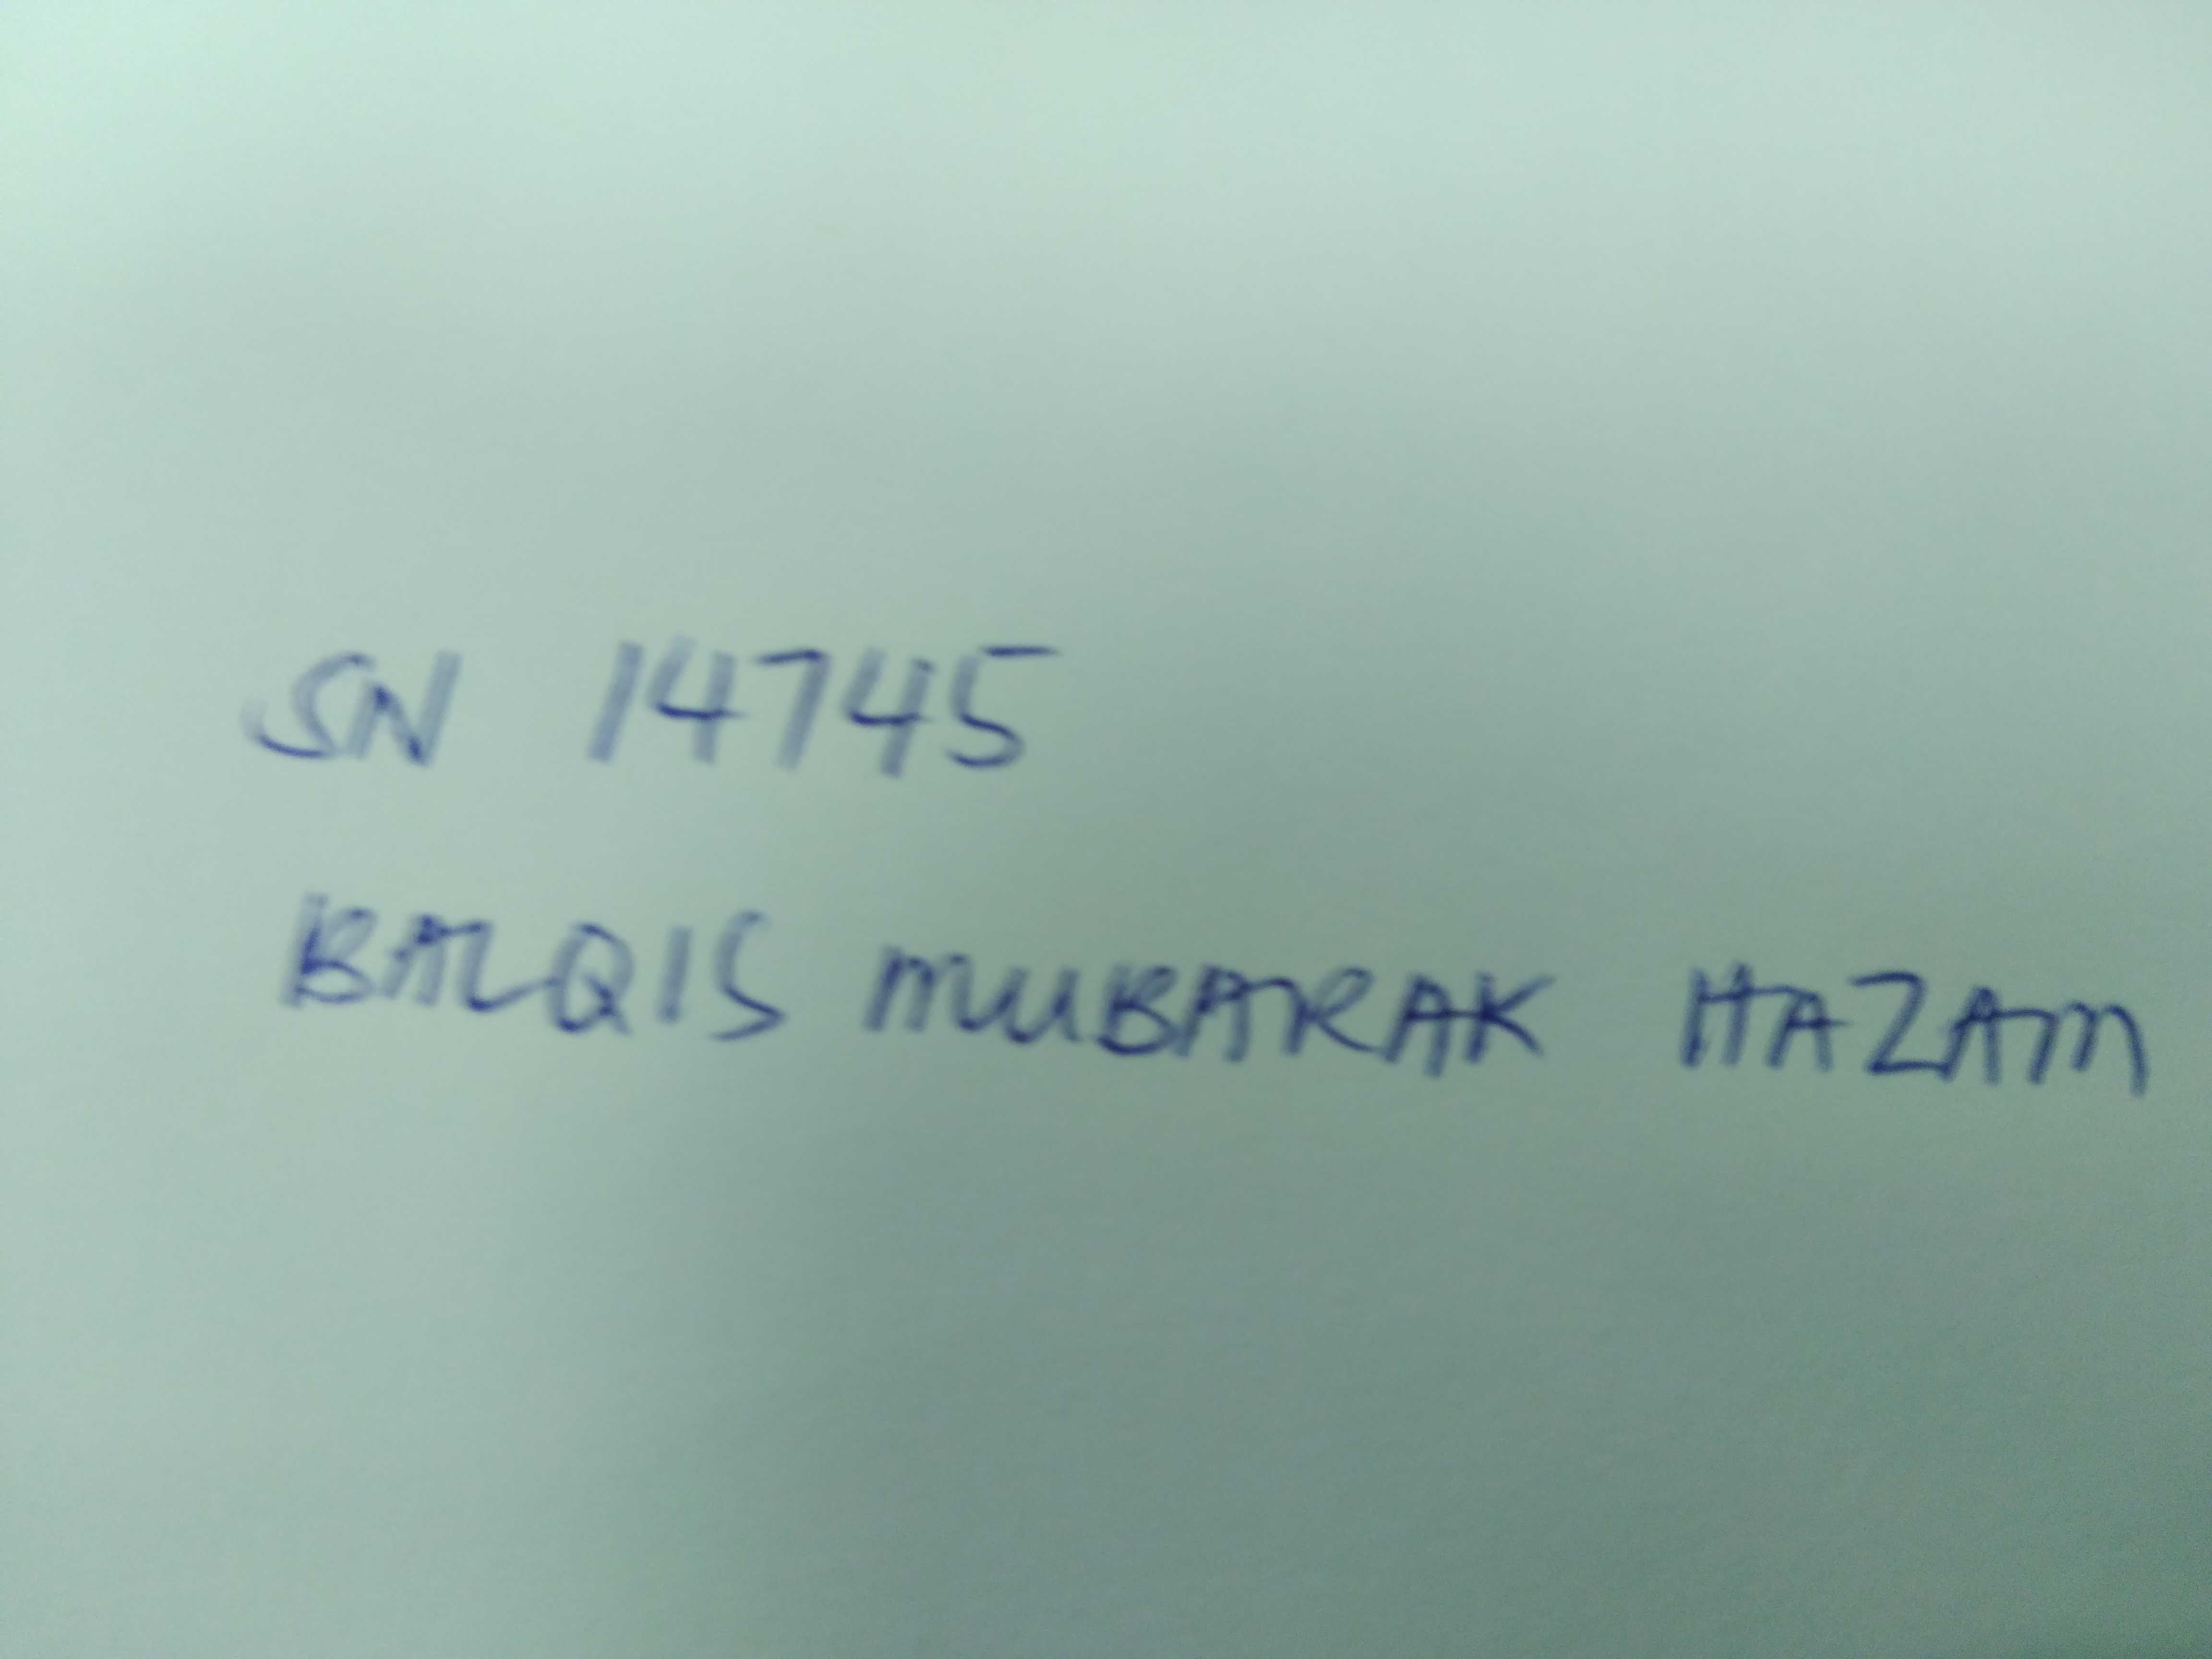 SN 14745
BALQIS MUBARAK HAZAM